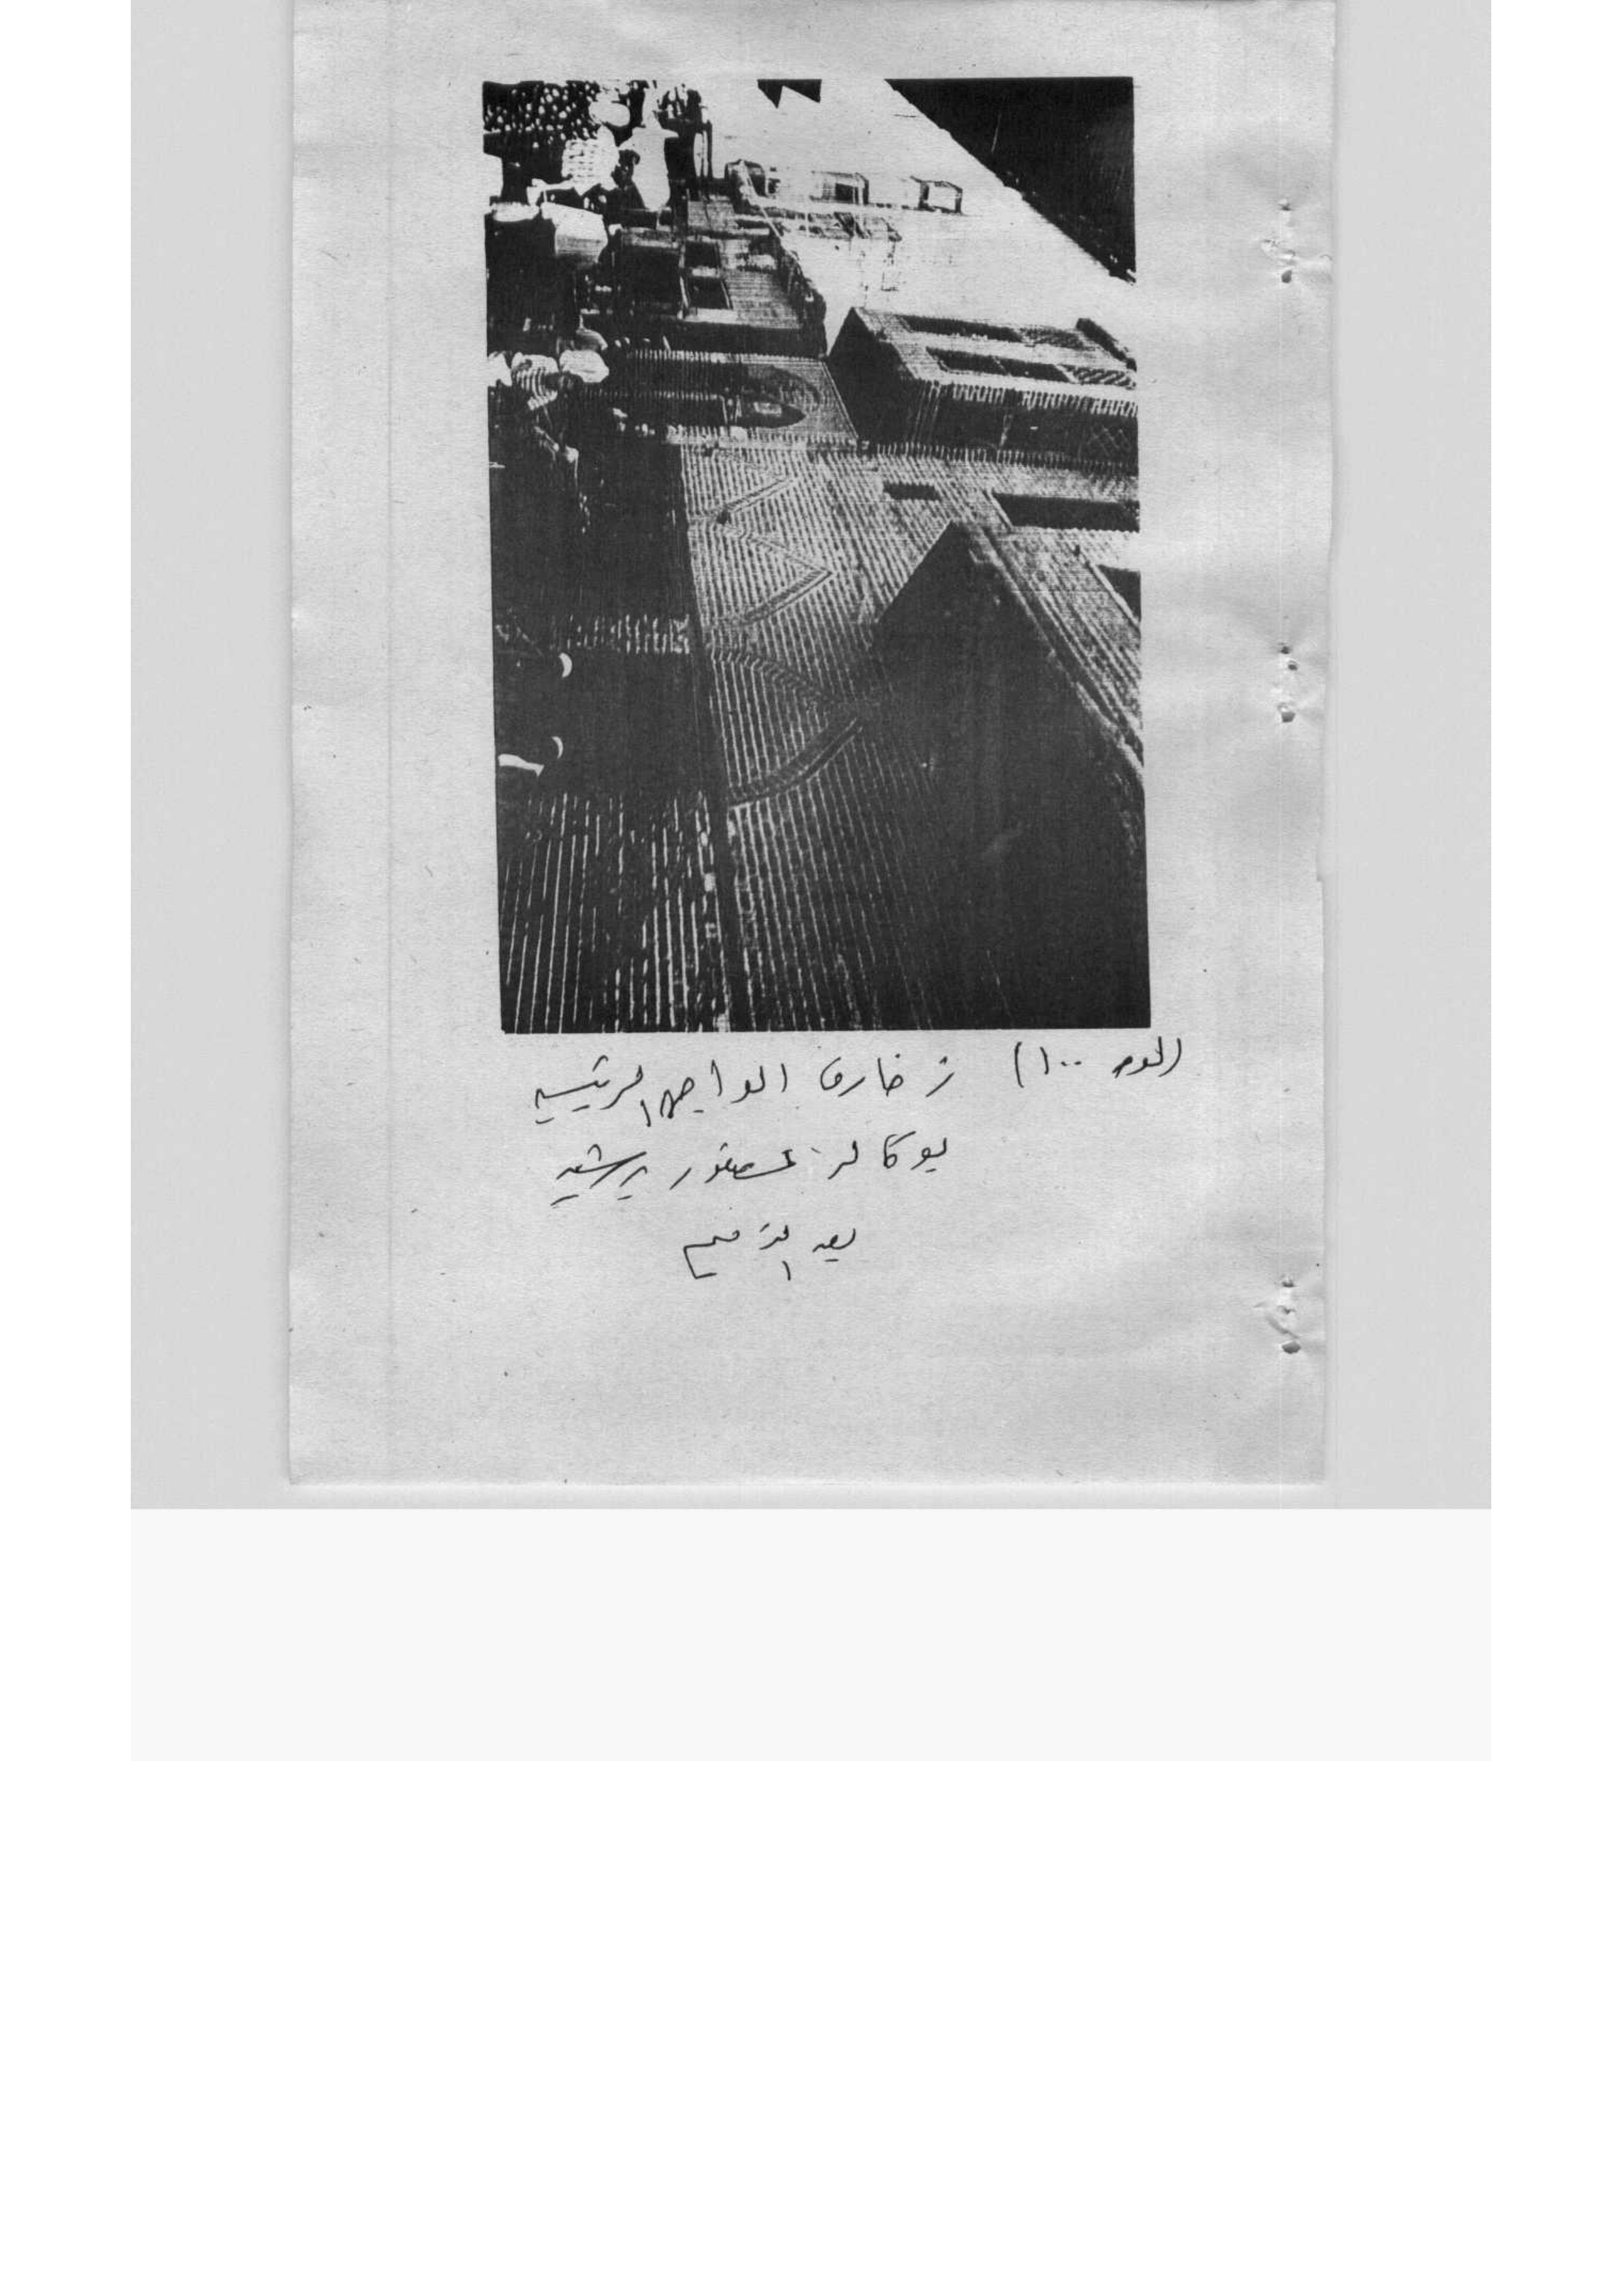 (لوحة ١٠٠) زخارف الواجهة الرئيسية
بوكالة عصفور برشيد
بعد الترميم